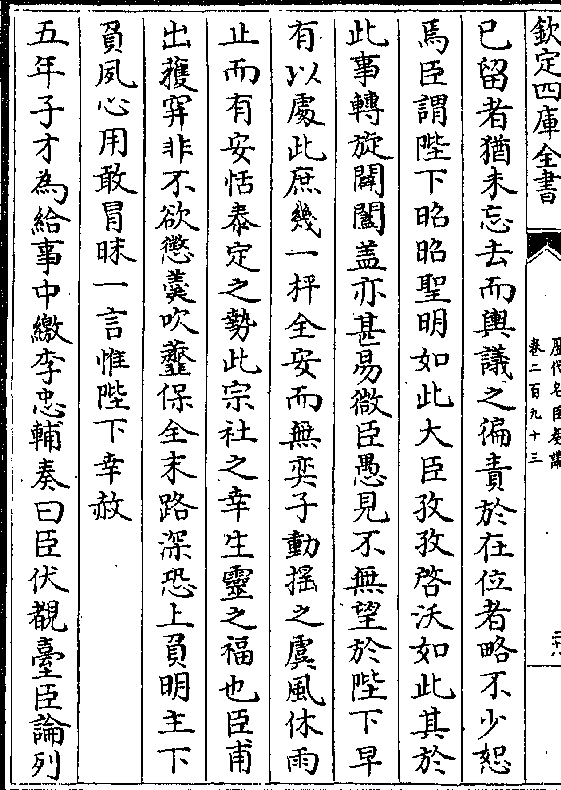 欽定四庫全書
歷代名臣奏議
卷二百九十三
二六
已留者猶未忘去而輿議之徧責於在位者略不少恕
焉臣謂陛下昭昭聖明如此大臣孜孜啓沃如此其於
此事轉旋闢闔盖亦甚易微臣愚見不無望於陛下早
有以處此庶幾一枰全安而無奕子動揺之虞風休雨
止而有安恬泰定之勢此宗社之幸生靈之福也臣甫
出攫穽非不欲懲羮吹虀保全末路深恐上負明主下
負夙心用敢冒昧一言惟陛下幸赦
五年子才為給事中繳李忠輔奏曰臣伏覩臺臣論列